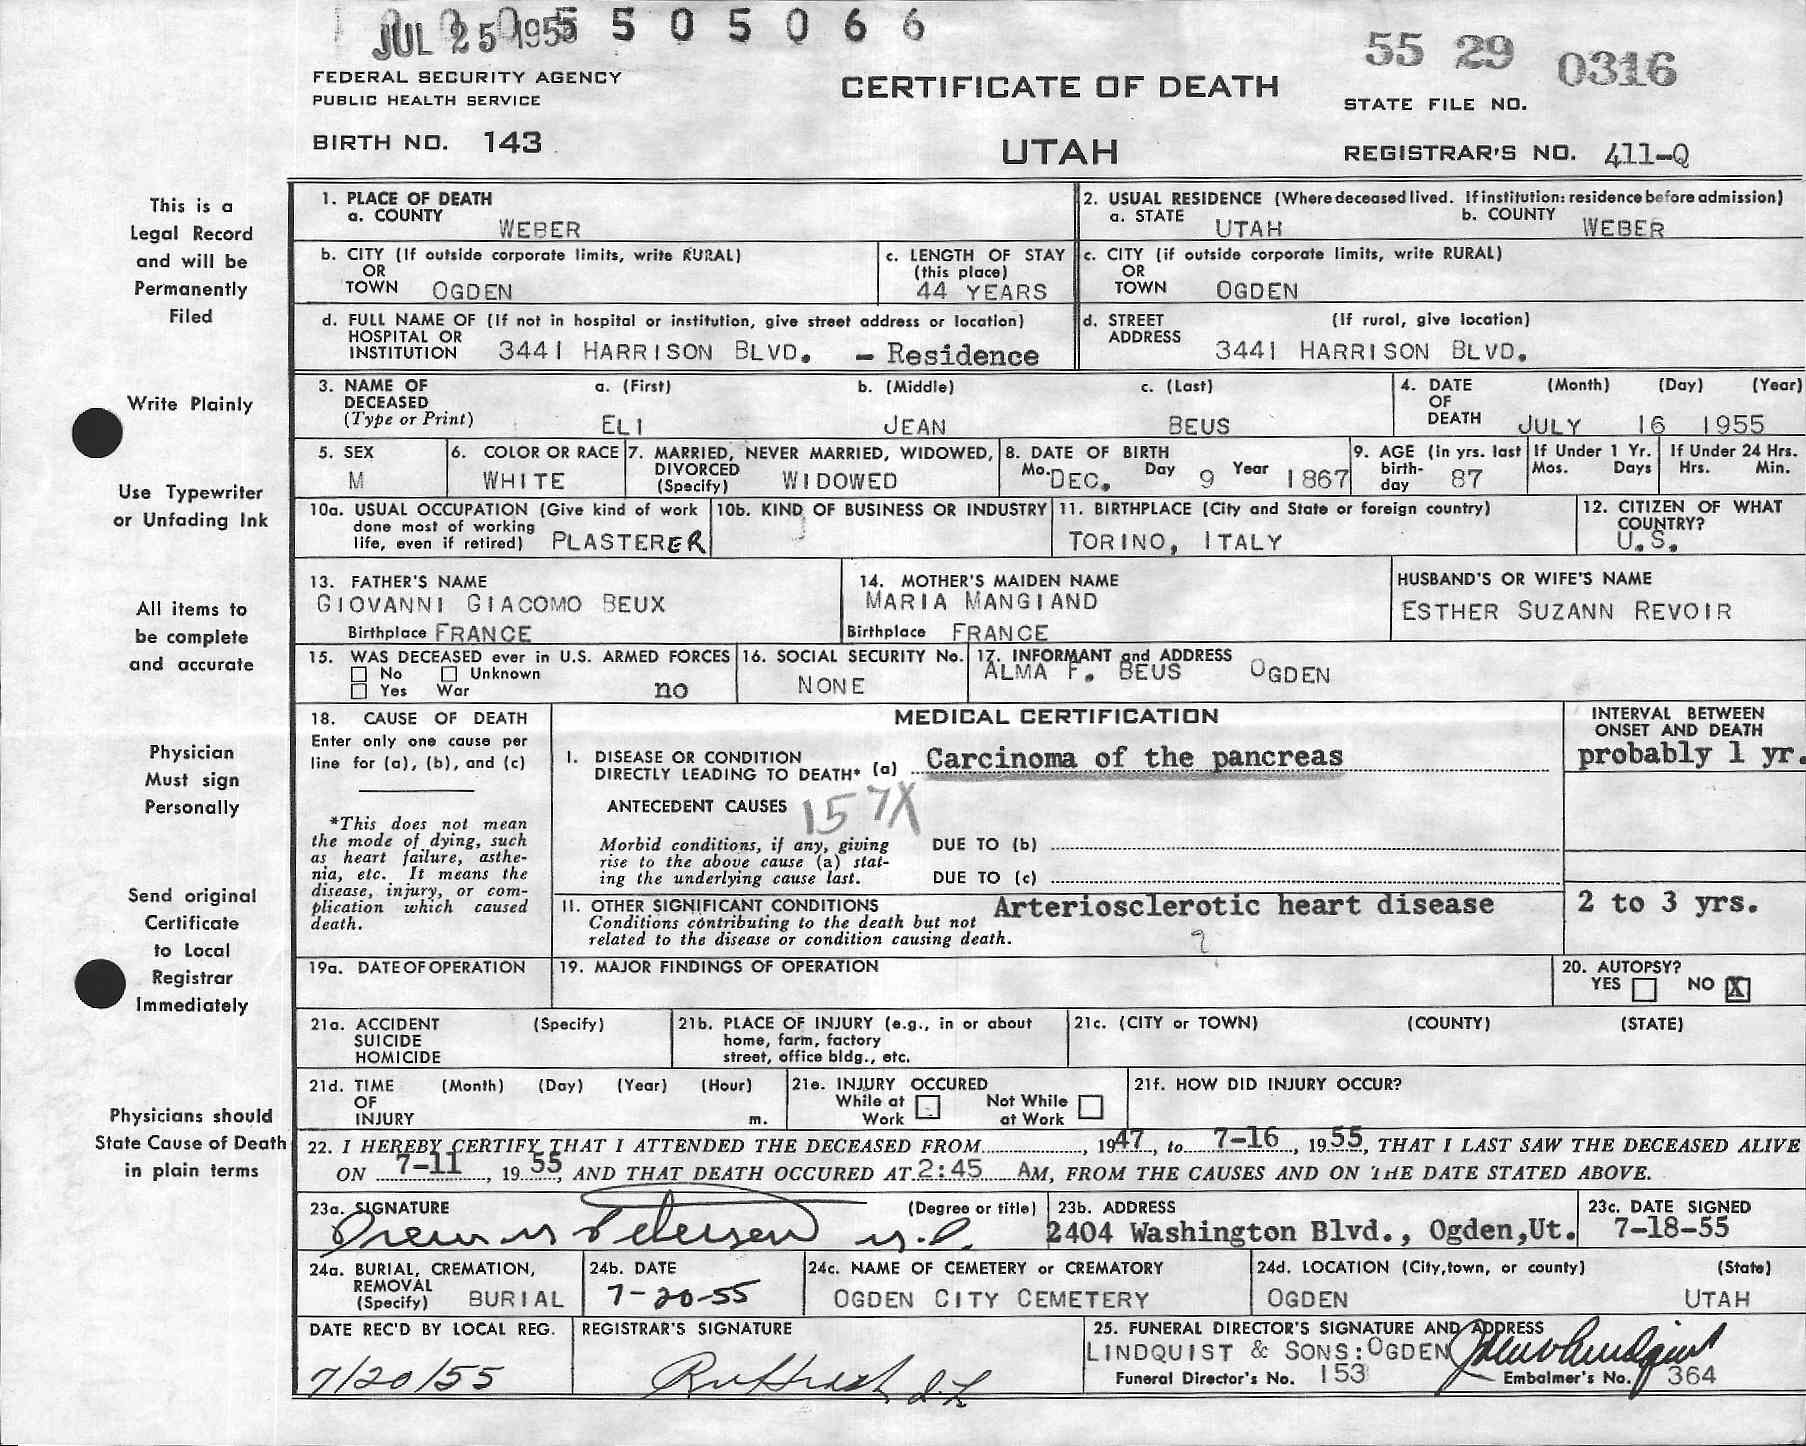 JUL 25 1955 5 5 0 5 0 6 6
55 29 0316
FEDERAL SECURITY AGENCY
PUBLIC HEALTH SERVICE
CERTIFICATE OF DEATH
STATE FILE NO.
BIRTH NO. 143
UTAH
REGISTRAR'S NO. 411-Q
This is a
Legal Record
and will be
Permanently
Filed
Write Plainly
Use Typewriter
or Unfading Ink
All items to
be complete
and accurate
Physician
Must sign
Personally
Send original
Certificate
to Local
Registrar
Immediately
Physicians should
State Cause of Death
in plain terms
1. PLACE OF DEATH
a. COUNTY
WEBER
2. USUAL RESIDENCE (Where deceased lived. If institution: residence before admission)
a. STATE UTAH b. COUNTY WEBER
b. CITY (If outside corporate limits, write RURAL)
OR
TOWN OGDEN
c. LENGTH OF STAY
(this place)
44 YEARS
c. CITY (if outside corporate limits, write RURAL)
OR
TOWN OGDEN
d. FULL NAME OF (If not in hospital or institution, give street address or location)
HOSPITAL OR
INSTITUTION 3441 HARRISON BLVD. - Residence
d. STREET (If rural, give location)
ADDRESS
3441 HARRISON BLVD.
3. NAME OF a. (First) b. (Middle) c. (Last)
DECEASED
(Type or Print) ELI JEAN BEUS
4. DATE (Month) (Day) (Year)
OF
DEATH JULY 16 1955
5. SEX
M
6. COLOR OR RACE
WHITE
7. MARRIED, NEVER MARRIED, WIDOWED,
DIVORCED
(Specify) WIDOWED
8. DATE OF BIRTH
Mo. DEC. Day 9 Year 1867
9. AGE (In yrs. last
birth-
day 87
If Under 1 Yr.
Mos. Days
If Under 24 Hrs.
Hrs. Min.
10a. USUAL OCCUPATION (Give kind of work
done most of working
life, even if retired) PLASTERER
10b. KIND OF BUSINESS OR INDUSTRY
11. BIRTHPLACE (City and State or foreign country)
TORINO, ITALY
12. CITIZEN OF WHAT
COUNTRY?
U.S.
13. FATHER'S NAME
GIOVANNI GIACOMO BEUX
Birthplace FRANCE
14. MOTHER'S MAIDEN NAME
MARIA MANGIAND
Birthplace FRANCE
HUSBAND'S OR WIFE'S NAME
ESTHER SUZANN REVOIR
15. WAS DECEASED ever in U.S. ARMED FORCES
No Unknown
Yes War no
16. SOCIAL SECURITY No.
NONE
17. INFORMANT and ADDRESS
ALMA F. BEUS OGDEN
18. CAUSE OF DEATH
Enter only one cause per
line for (a), (b), and (c)
*This does not mean
the mode of dying, such
as heart failure, asthe-
nia, etc. It means the
disease, injury, or com-
plication which caused
death.
MEDICAL CERTIFICATION
INTERVAL BETWEEN
ONSET AND DEATH
I. DISEASE OR CONDITION
DIRECTLY LEADING TO DEATH* (a) Carcinoma of the pancreas probably 1 yr.
ANTECEDENT CAUSES 157X
Morbid conditions, if any, giving
rise to the above cause (a) stat-
ing the underlying cause last.
DUE TO (b)
DUE TO (c)
11. OTHER SIGNIFICANT CONDITIONS
Conditions contributing to the death but not
related to the disease or condition causing death.
Arteriosclerotic heart disease 2 to 3 yrs.
19a. DATE OF OPERATION
19. MAJOR FINDINGS OF OPERATION
20. AUTOPSY?
YES NO X
21a. ACCIDENT (Specify)
SUICIDE
HOMICIDE
21b. PLACE OF INJURY (e.g., in or about
home, farm, factory
street, office bldg., etc.
21c. (CITY or TOWN) (COUNTY) (STATE)
21d. TIME (Month) (Day) (Year) (Hour)
OF
INJURY m.
21e. INJURY OCCURED
While at Not While
Work at Work
21f. HOW DID INJURY OCCUR?
22. I HEREBY CERTIFY THAT I ATTENDED THE DECEASED FROM, 1947, to 7-16, 1955, THAT I LAST SAW THE DECEASED ALIVE
ON 7-11, 1955, AND THAT DEATH OCCURED AT 2:45 AM, FROM THE CAUSES AND ON THE DATE STATED ABOVE.
23a. SIGNATURE (Degree or title)
Petersen M.D.
23b. ADDRESS
2404 Washington Blvd., Ogden, Ut.
23c. DATE SIGNED
7-18-55
24a. BURIAL, CREMATION,
REMOVAL
(Specify) BURIAL
24b. DATE
7-20-55
24c. NAME OF CEMETERY or CREMATORY
OGDEN CITY CEMETERY
24d. LOCATION (City, town, or county) (State)
OGDEN UTAH
DATE REC'D BY LOCAL REG.
7/20/55
REGISTRAR'S SIGNATURE
25. FUNERAL DIRECTOR'S SIGNATURE AND ADDRESS
LINDQUIST & SONS: OGDEN
Funeral Director's No. 153 Embalmer's No. 364